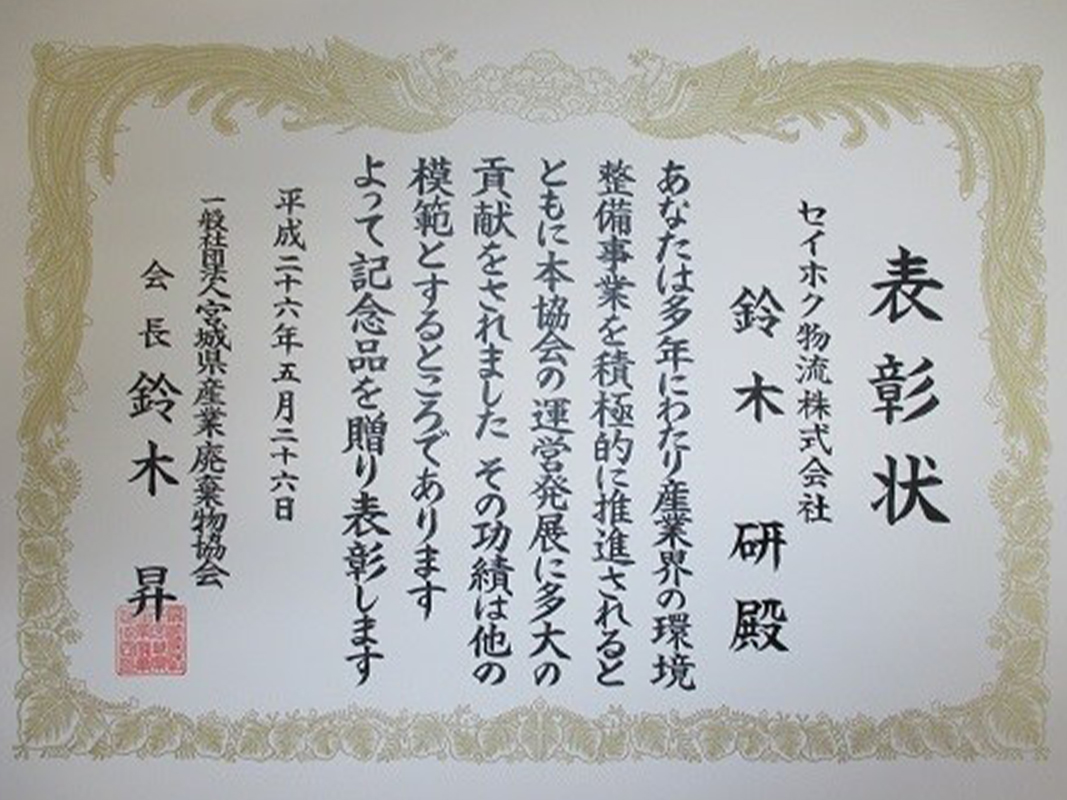 表彰状
セイホク物流株式会社
鈴木 研 殿
あなたは多年にわたり産業界の環境
整備事業を積極的に推進されると
ともに本協会の運営発展に多大の
貢献をされました その功績は他の
模範とするところであります
よって記念品を贈り表彰します
平成二十六年五月二十六日
一般社団法人宮城県産業廃棄物協会
会長 鈴木 昇